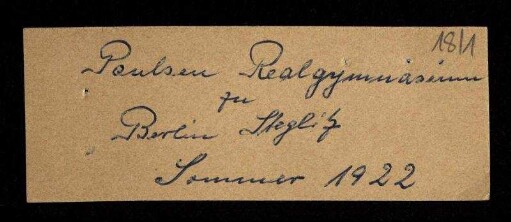 18/1
Paulsen Realgymnasium
zu
Berlin Steglitz
Sommer 1922